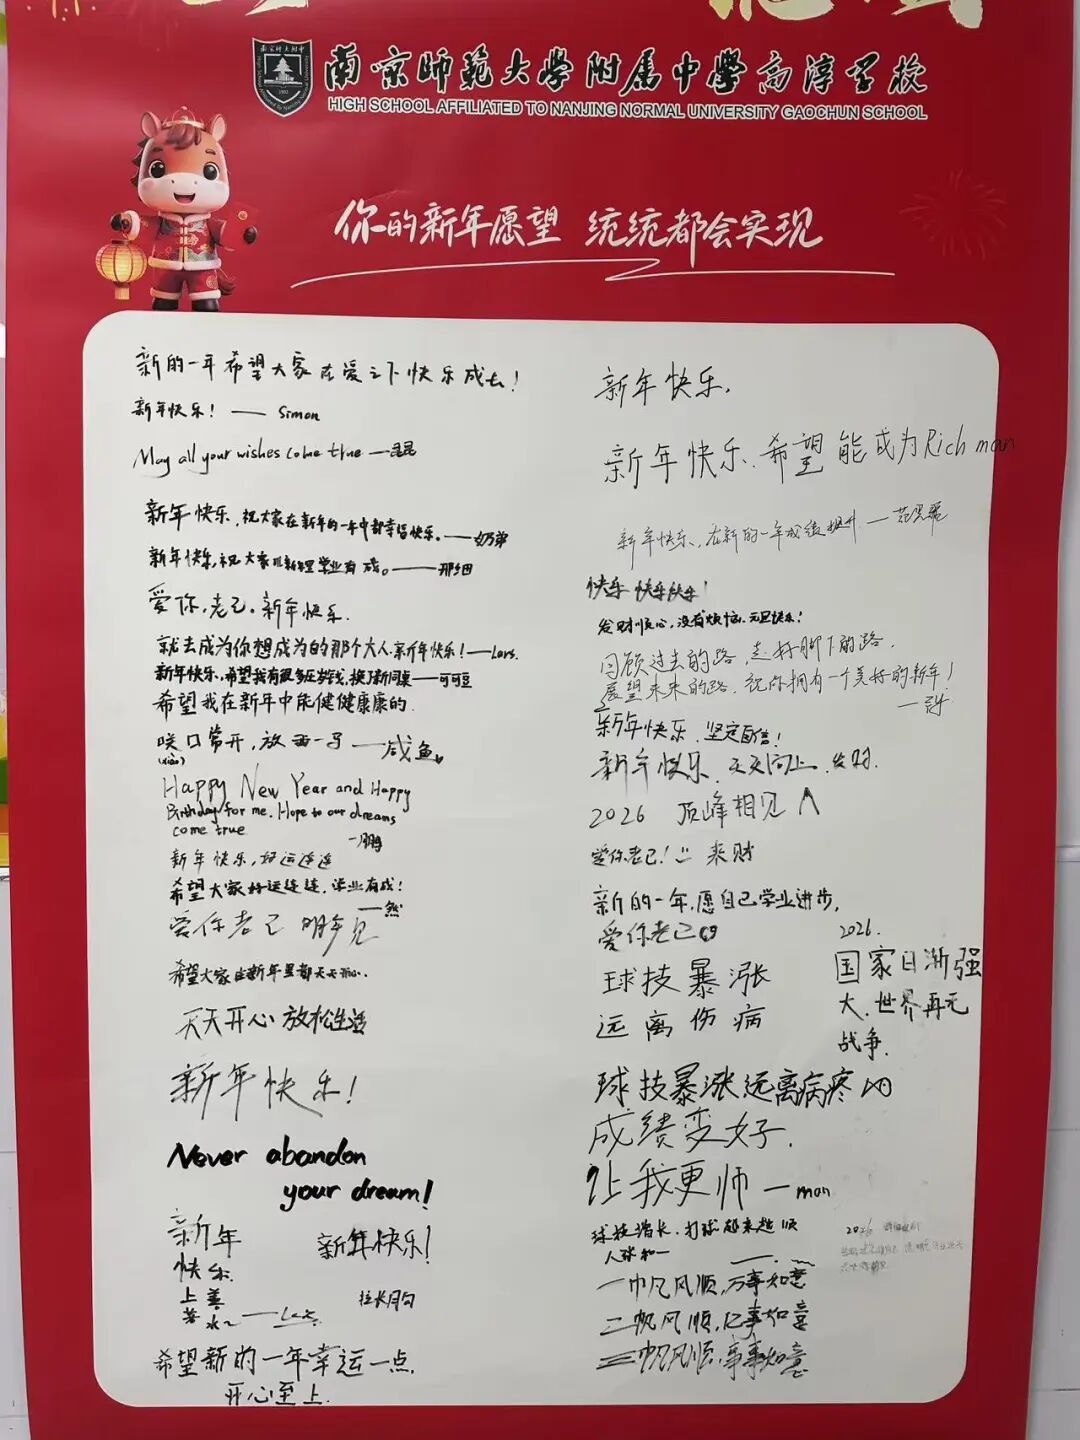 南京师范大学附属中学高淳学校
HIGH SCHOOL AFFILIATED TO NANJING NORMAL UNIVERSITY GAOCHUN SCHOOL
你的新年愿望 统统都会实现
新的一年希望大家在爱之下快乐成长！
新年快乐！—— Simon
May all your wishes come true —
新年快乐，祝大家在新年的一年中都幸福快乐。——奶弟
新年快乐，祝大家 学业有成。——那细
爱你，老己。新年快乐.
就去成为你想成为的那个大人.新年快乐！—Lars.
新年快乐，希望我有很多压岁钱，换了新同桌——可可豆
希望我在新年中能健健康康的.
咲口常开，放 一号 ——咸鱼
(xiào)
Happy New Year and Happy
Birthday for me. Hope to our dreams
come true
—鹏
新年快乐，好运连连
希望大家好运连连，学业有成！
—然
爱你老己 明年见
希望大家在新年里都天天开心.
天天开心 放松生活
新年快乐！
Never abandon
your dream!
新年
快乐.
上善
若水~
新年快乐！
拉长月勾
希望新的一年幸运一点.
开心至上.
新年快乐.
新年快乐.希望能成为Rich man
新年快乐，在新的一年成绩提升 —
快乐 快乐快乐！
发财顺心，没有烦恼.元旦快乐！
回顾过去的路，走好脚下的路.
展望未来的路.祝你拥有一个美好的新年！
新年快乐.坚定自信！
新年快乐.天天向上.发财.
2026 顶峰相见
爱你老己！ 来财
新的一年，愿自己学业进步，
爱你老己
球技暴涨
远离伤病
2026.
国家日渐强
大.世界再无
战争.
球技暴涨远离病疼
成绩变好.
让我更帅 — man
球技增长.打球起来越顺
人张和一
一帆风顺，万事如意
二帆风顺，亿事如意
三帆风顺，事事如意
2026